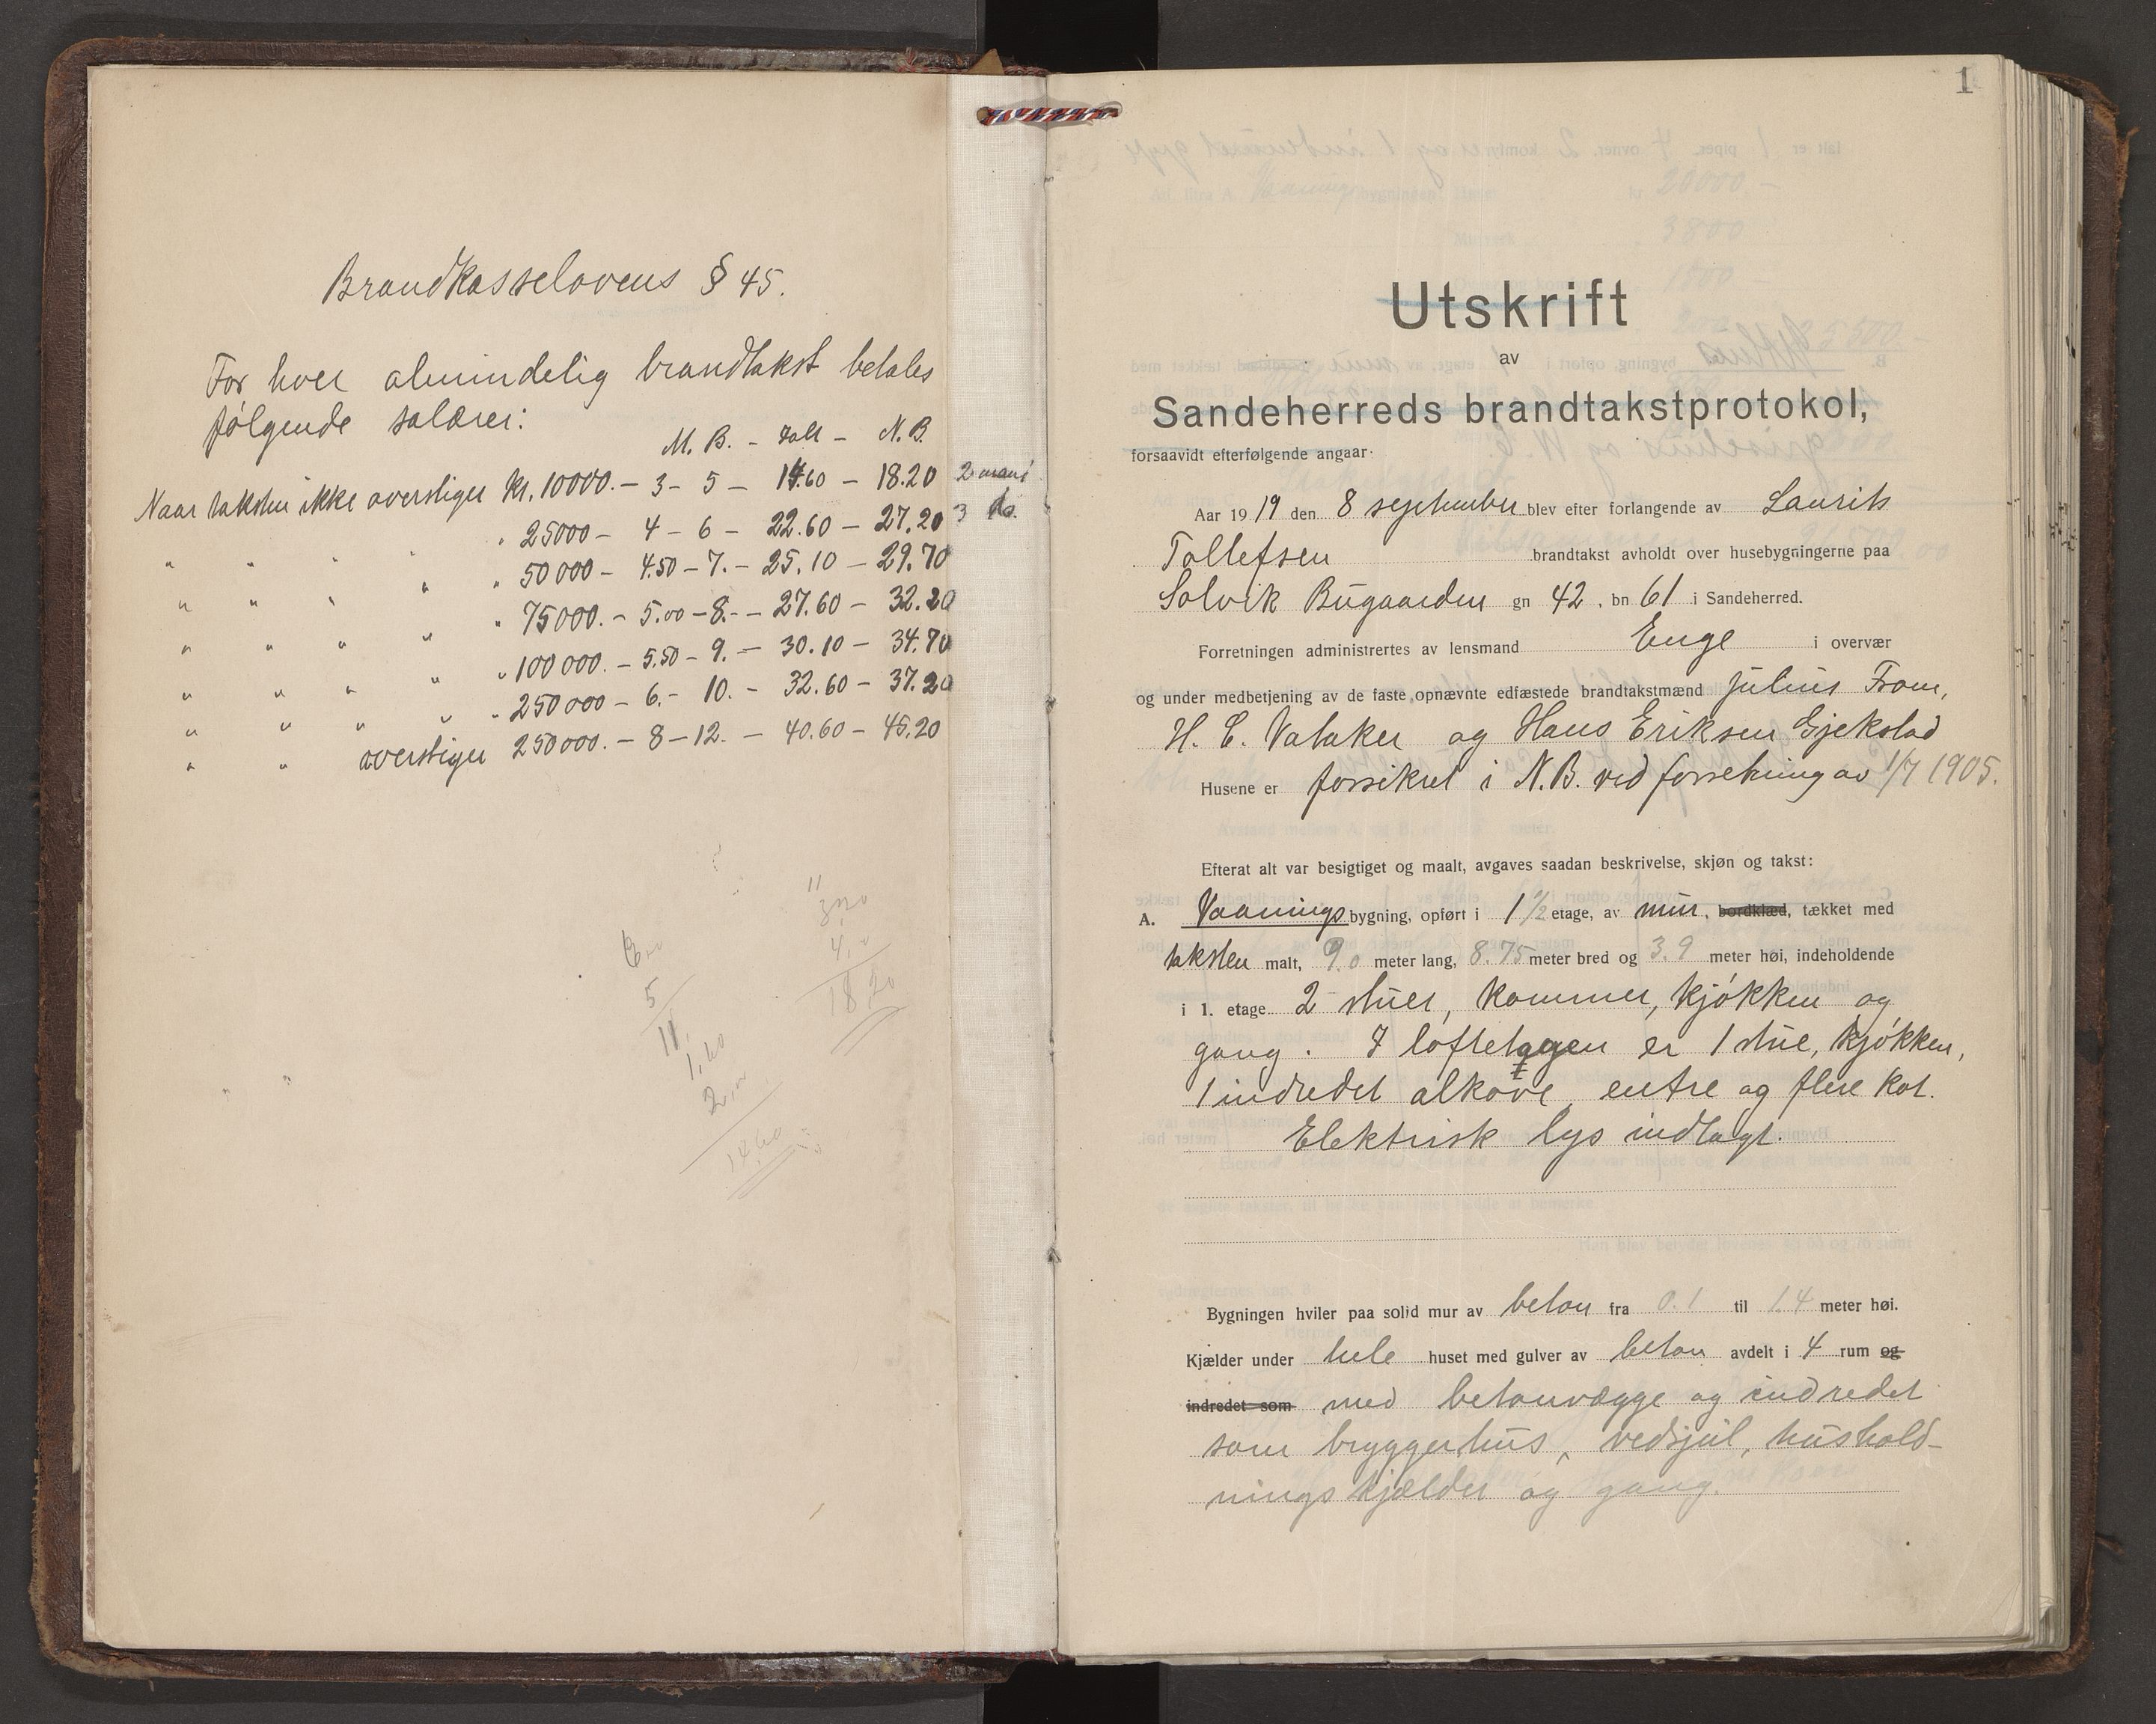 Brandkasselovens § 45.
For hver almindelig brandtakst betales
følgende salærer:
M. B. - Ialt - N. B.
Naar taksten ikke overstiger kr. 10000.- 3- 5 - 14.60 - 18.20 2 mand
" " " " " 25000 - 4 - 6 - 22.60 - 27.20 3 do.
" " " " " 50000 - 4.50 - 7. - 25.10 - 29.70
" " " " " 75000. - 5.00 - 8. - 27.60 - 32.20
" " " " " 100000. - 5.50 - 9. - 30.10 - 34.70
" " " " " 250000 - 6. - 10. - 32.60 - 37.20
" " overstiger 250000. - 8 - 12. - 40.60 - 45.20
11
4
18 20
5
11.
1,60
2,00
14.60
1
Utskrift
av
Sandeherreds brandtakstprotokol,
forsaavidt efterfølgende angaar:
Aar 1919 den 8 september blev efter forlangende av Laurits
Tollefsen brandtakst avholdt over husebygningerne paa
Solvik Bugaarden gn 42, bn 61 i Sandeherred.
Forretningen administrertes av lensmand Enge i overvær
og under medbetjening av de faste opnævnte edfæstede brandtakstmænd Julius From,
H. E. Vataker og Hans Eriksen Gjekstad
Husene er forsikret i N.B. ved forretning av 1/7 1905.
Efterat alt var besigtiget og maalt, avgaves saadan beskrivelse, skjøn og takst:
A. Vaanings bygning, opført i 1 1/2 etage, av mur, bordklæd, tækket med
taksten malt, 9.0 meter lang, 8.75 meter bred og 3.9 meter høi, indeholdende
i 1. etage 2 stuer, kammer, kjøkken og
gang. I loftetagen er 1 stue, kjøkken,
1 indredet alkove, entre og flere kot.
Elektrisk lys indlagt.
Bygningen hviler paa solid mur av beton fra 0.1 til 1.4 meter høi.
Kjælder under hele huset med gulver av beton avdelt i 4 rum og
indredet som med betonvægge og indredet
som bryggerhus, vedsjul, hushold-
ningskjælder og gang.